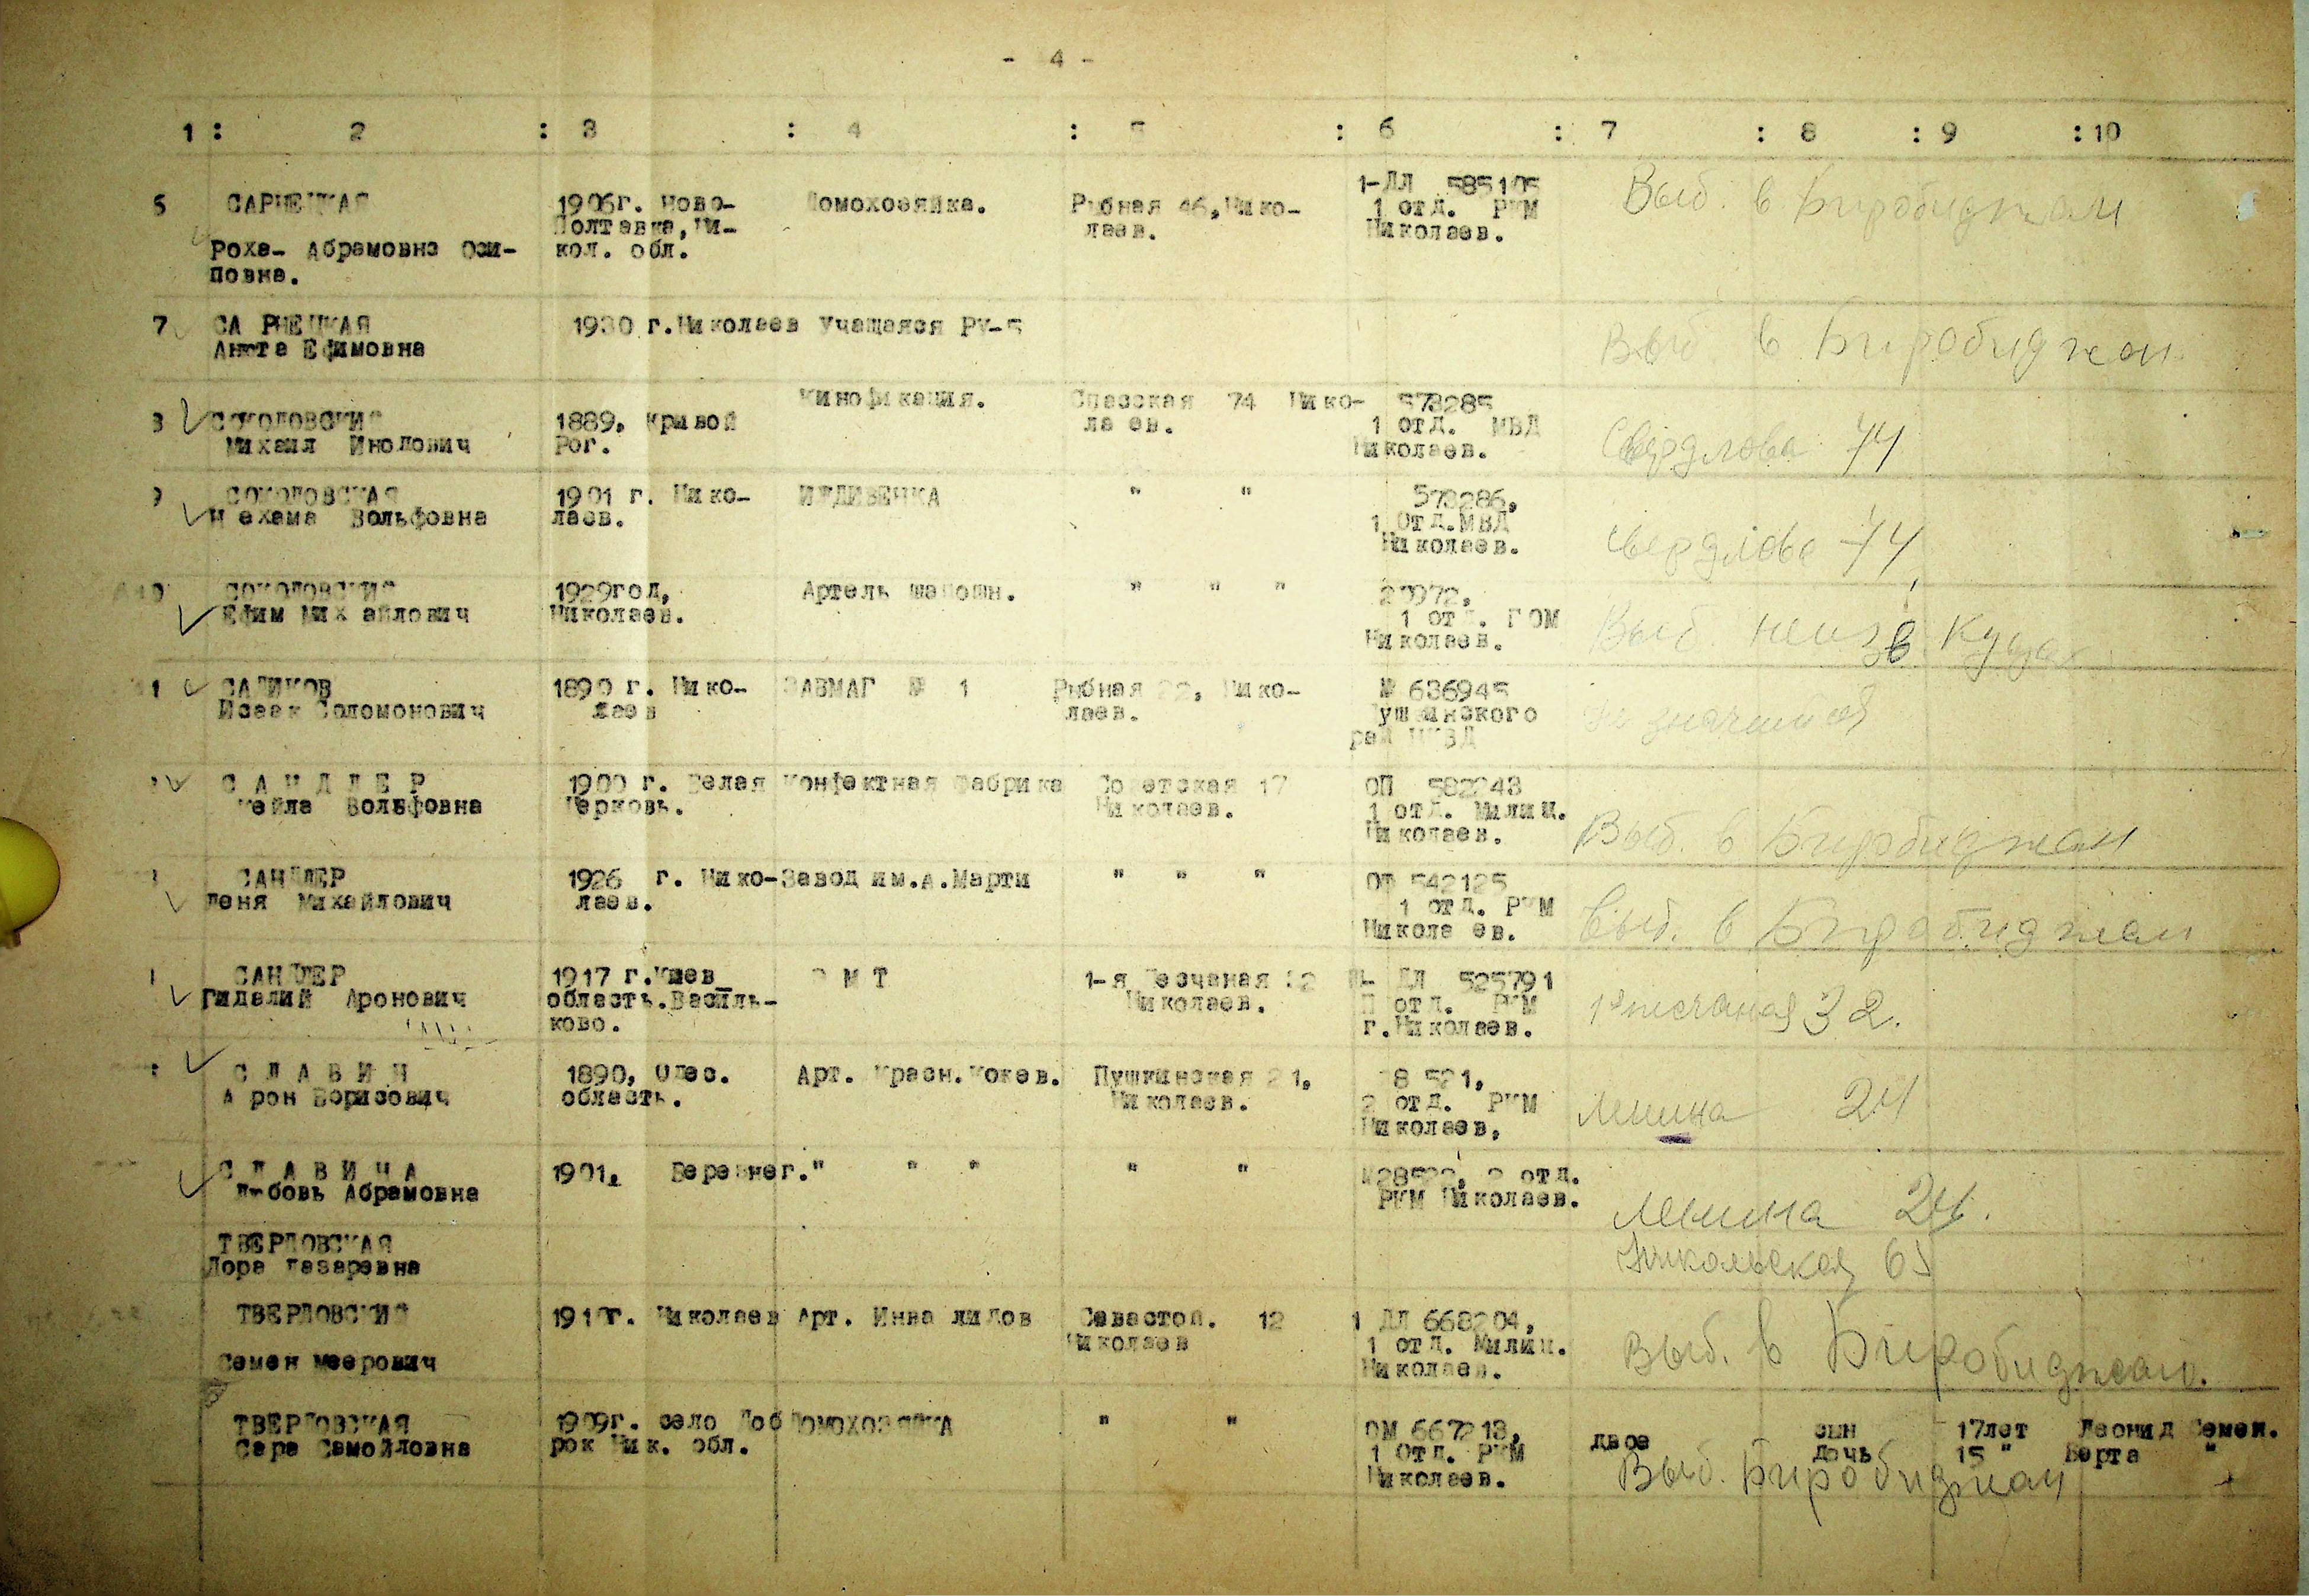 - 4 -
1 : 2 : 3 : 4 : 5 : 6 : 7 : 8 : 9 : 10
САРНЕЦКАЯ
Роха- Абрамовна Оси-
повна.
1906г. Ново-
Полтавка, Ни-
кол. обл.
Домохозяйка.
Рыбная 46, Нико-
лаев.
1-ДЛ 585105
1 отд. РКМ
Николаев.
Выб. в Биробиджан
7 САРНЕЦКАЯ
Анюта Ефимовна
1930 г. Николаев
Учащаяся РУ-5
Выб. в Биробиджан
СОКОЛОВСКИЙ
Михаил
1889, Кривой
Рог.
Кинофикация.
Спасская 74 Нико-
лаев.
573285
1 отд. МВД
Николаев.
Свердлова 74
9 СОКОЛОВСКАЯ
Нехама Вольфовна
1901 г. Нико-
лаев.
ИЖДИВЕНКА
" "
573286,
1 Отд. МВД
Николаев.
Свердлова 74
СОКОЛОВСКИЙ
Ефим Михайлович
1929год,
Николаев.
Артель шапошн.
" " "
1 отд. ГОМ
Николаев.
Выб. неизв. куда
САЛИКОВ
Исаак Соломонович
1890 г. Нико-
лаев
ЗАВМАГ № 1
Рыбная 22, Нико-
лаев.
№ 636945
рай НКВД
не значится
С А Н Д Л Е Р
Вольфовна
1900 г. Белая
Церковь.
Конфектная фабрика
Советская 17
Николаев.
ОП 582243
1 отд. Милиц.
Николаев.
Выб. в Биробиджан
САНДЛЕР
Леня Михайлович
1926 г. Нико-
лаев.
Завод им.А.Марти
" " "
542125
1 отд. РКМ
Николаев.
Выб. в Биробиджан
САНДЛЕР
Гидалий Аронович
1917 г. Киев
область. Василь-
ково.
1-я Песчаная 32
Николаев.
ДЛ 525791
П отд. РКМ
г. Николаев.
1я песчаная 32.
С Л А В И Н
Арон Борисович
1890, Одес.
область.
Арт. Красн. Кожев.
Пушкинская 21,
Николаев.
2 отд. РКМ
Николаев,
Ленина 24
С Л А В И Н А
Любовь Абрамовна
1901, Березнег.
" " "
" "
2 отд.
РКМ Николаев.
Ленина 24.
ТВЕРДОВСКАЯ
Лора Лазаревна
Никольская 65
ТВЕРДОВСКИЙ
Семен Меерович
Николаев
Арт. Инвалидов
Севастоп. 12
Николаев
1 ДЛ 668204,
1 отд. Милиц.
Николаев.
Выб. в Биробиджан.
ТВЕРДОВСКАЯ
Сара Самойловна
1909г. село Доб
рок Ник. обл.
ДОМОХОЗЯЙКА
" "
ОМ 667213,
1 Отд. РКМ
Николаев.
двое
сын 17лет Леонид Семен.
дочь 15 " Берта "
Выб. Биробиджан